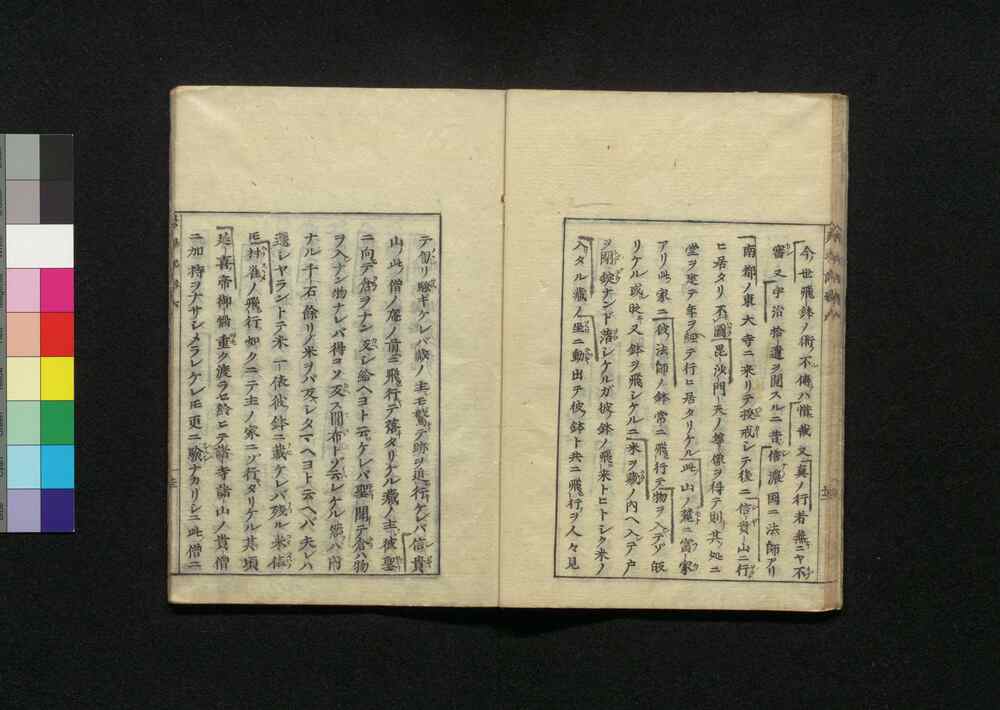 今世飛鉢ノ術不傳ハ惟哉又真ノ行者無ニヤ不
審又宇治拾遺ヲ閲スルニ昔信濃国ニ法師アリ
南都ノ東大寺ニ来リテ授戒シテ後ニ信貴山ニ行
ヒ居タリ不圖毘沙門天ノ尊像ヲ得テ則其処ニ
堂ヲ建テ年ヲ経テ行ヒ居タリケル此山ノ麓ニ富家
アリ此家ニ彼法師ノ鉢常ニ飛行テ物ヲ入テゾ皈
リケル或時又鉢ヲ飛シケルニ米ヲ蔵ノ内ヘ入テ戸
ヲ閉錠ナンド落シケルガ彼鉢ノ飛来トヒトシク米ノ
入タル蔵ノ坐ニ動出テ彼鉢ト共ニ飛行ヲ人々見
テ騒ギケレバ蔵ノ主モ驚テ跡ヲ追行ケレバ信貴
山此僧ノ庵ノ前ニ飛行テ落タリケル蔵ノ主彼聖
ニ向テ倉ヲナン返シ給ヘヨト云ケレバ聖聞テ倉ハ物
ヲ入ナン物ナレバ得コソ返ス間布トゾ云レケル然ハ内
ナル千石餘リノ米ヲバ返シタマヘヨト云ヘバ夫レハ
還シヤラントテ米一俵彼鉢ニ載ケレバ残ル米俵
𪜈村雀ノ飛行如クニテ主ノ家ニゾ行タリケル其頃
延喜帝御悩重ク渡ラセ給ヒテ諸寺諸山ノ貴僧
ニ加持ヲナサシメラレケレ𪜈更ニ験ナカリシニ此僧ニ